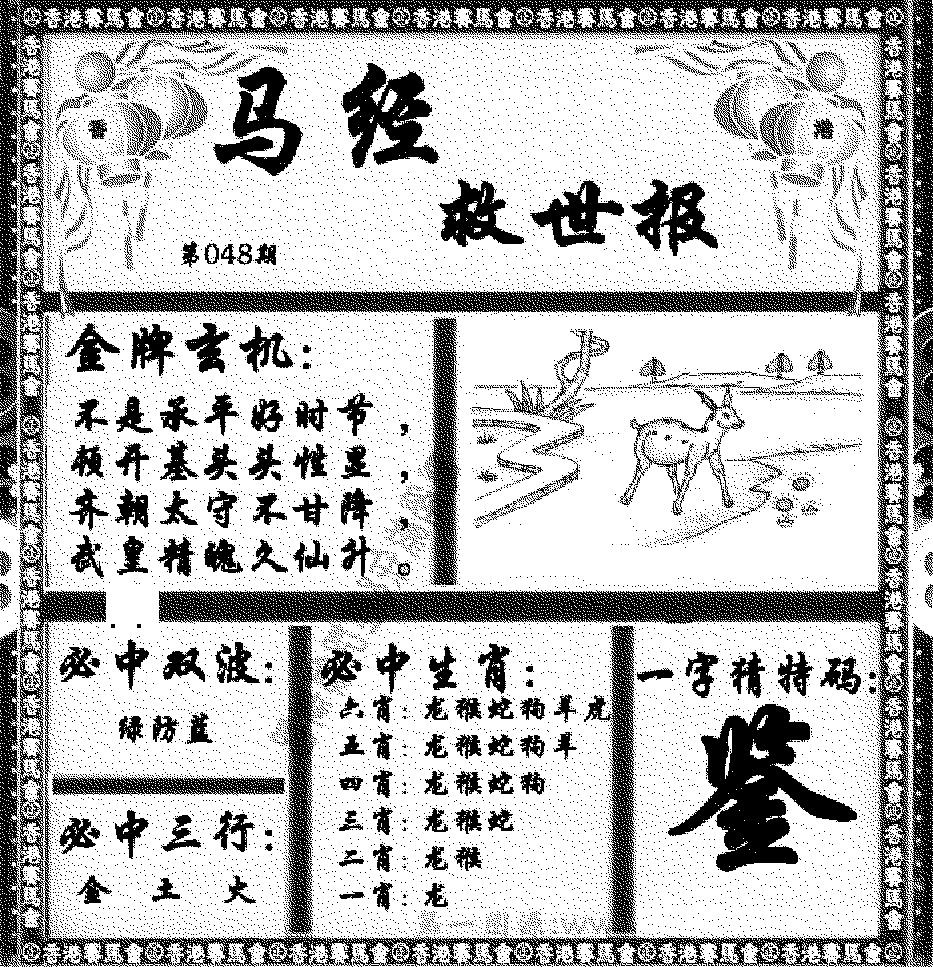 香港賽馬會香港賽馬會香港賽馬會香港賽馬會香港賽馬會香港賽馬會香港賽馬會
香
港
马经
救世报
第048期
金牌玄机:
不是承平好时节，
顿开基头头性显，
齐朝太守不甘降，
武皇精魄久仙升。
必中双波:
绿防蓝
必中三行:
金 土 火
必中生肖:
六肖: 龙猴蛇狗羊虎
五肖: 龙猴蛇狗羊
四肖: 龙猴蛇狗
三肖: 龙猴蛇
二肖: 龙猴
一肖: 龙
一字猜特码:
鉴
香港賽馬會香港賽馬會香港賽馬會香港賽馬會香港賽馬會香港賽馬會香港賽馬會